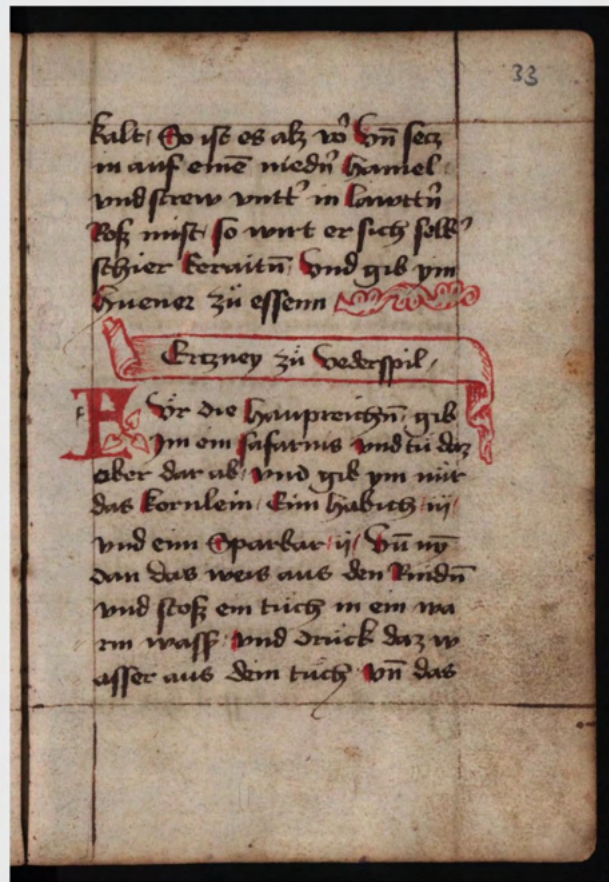 33
kalt / So ist es alz vo᷑ Vn̄ secz
in auf einē niedn̄ hamel
vnd strew vntt᷑ in lawttn̄
Roß mist / so wirt er sich selb᷑
schier kerncitn̄ / Vnd gib ym
huener zü essenn
Erczney zü vederspil /
Fvr die haupreichn̄ / gib
Im ein safarius vnd tü daz
ober dar ab / vnd gib ym nür
das kornlein / Eim habich iij /
vnd eim Sparbar ij / Vn̄ nȳ
dan das weis aus den Rindn̄
vnd stoß ein tüch in ein wa
rm wass᷑ / vnd drück daz w
asser aus dem tüch / vn̄ das